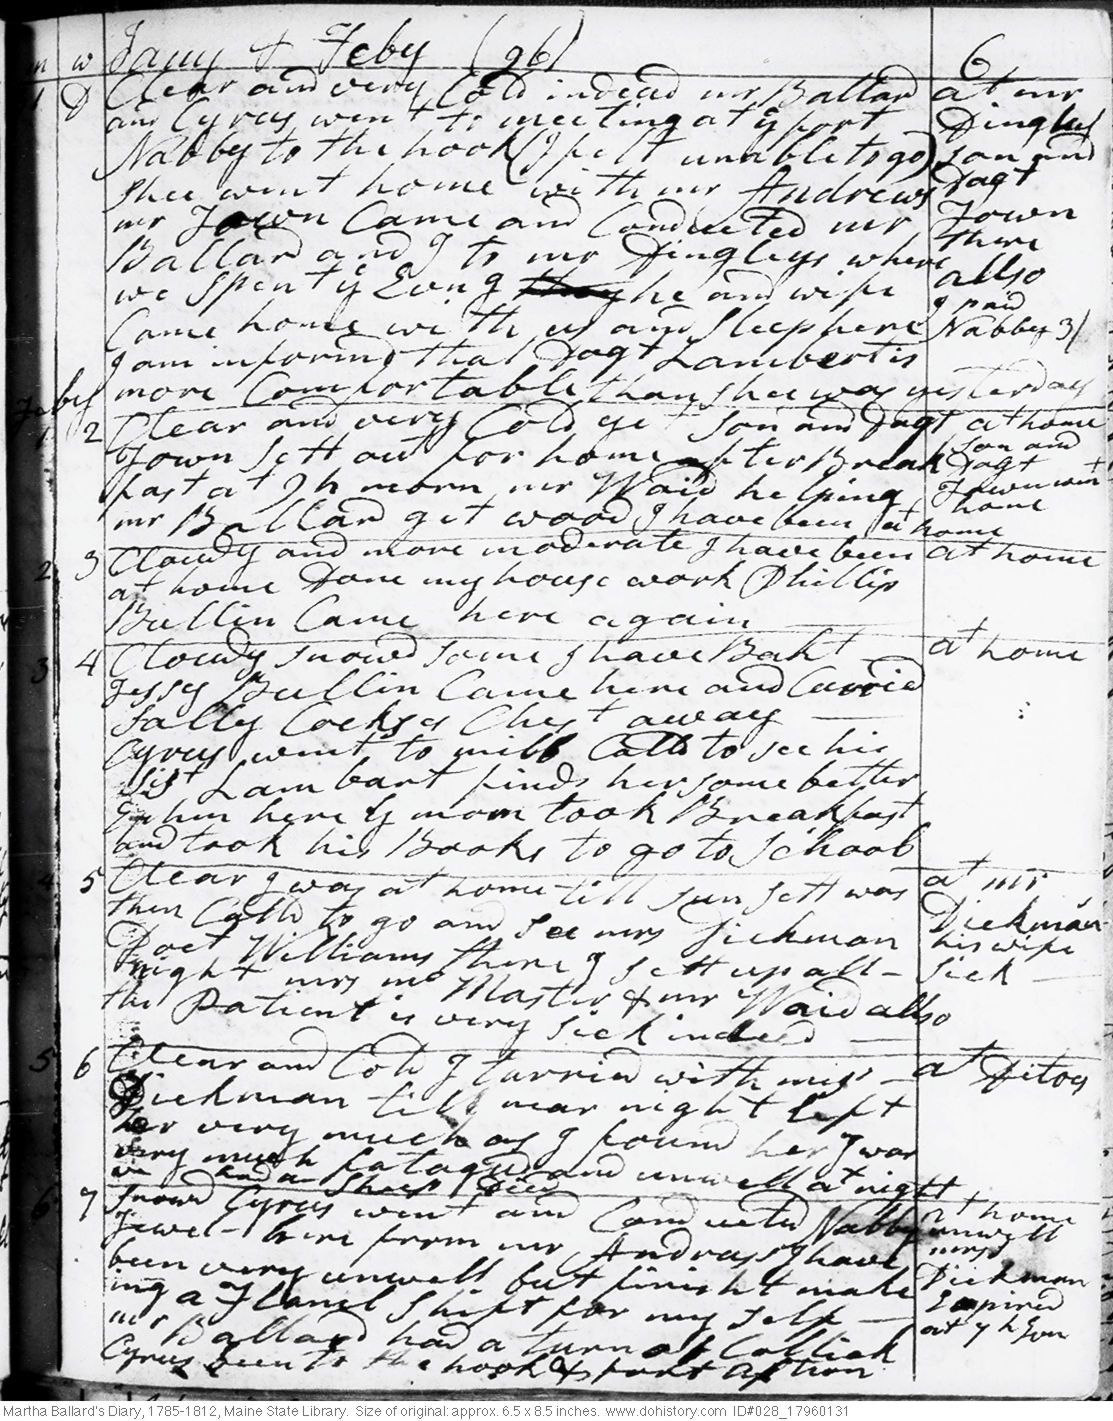 m w Jany & Feby (96) 6
31 D Clear and very Cold indeed mr Ballard at mr
and Cyrus went to meeting at ye port Dingleys
Nabby to the hook (I felt unable to go) son and
shee went home with mr Andrews Dagt
mr Town Came and Conducted mr Town
Ballard and I to mr Dingleys where there
we Spent ye Evng he and wife allso
Came home with us and Sleep here I paid Nabby 3/
I am informd that Dagt Lambert is
more Comfortable than shee was yesterday
Feby
1 2 Clear and very Cold yet son and Dagt at home
Town Sett out for home after Break son and Dagt
fast at 9 h morn mr Waid helping Town went home
mr Ballard git wood I have been at home
2 3 Cloudy and more moderate I have been at home
at home Done my house work Phillip
Bullin Came here again
3 4 Cloudy snowd some I have Bakt at home
Jessy Bullin Came here and Carried
Sally Cockses Chest away
Cyrus went to mill Calld to see his
Sist Lambart finds her some better
Ephm here ys morn took Breakfast
and took his Books to go to School
4 5 Clear I was at home till sun sett was at mr
then Calld to go and see mrs Dickman Dickman
Doct Williams there I sett up all his wife
night mrs mc Master & mr Waid allso sick
the Patient is very sick indeed
5 6 Clear and Cold I tarried with mrs at Ditos
Dickman till near night left
her very much as I found her I was
very much fatagud and unwell at night
and a Sheep Died
6 7 Snowd Cyrus went and Conducted Nabby at home
Jewel here from mr Andrass I have unwell
been very unwell but finisht make mrs
ing a Flanel Shift for my self Dickman
mr Ballard had a turn of Collick Expired
Cyrus been to the hook & port aftnn at 7 h Evn
Martha Ballard's Diary, 1785-1812, Maine State Library. Size of original: approx. 6.5 x 8.5 inches. www.dohistory.com ID#028_17960131